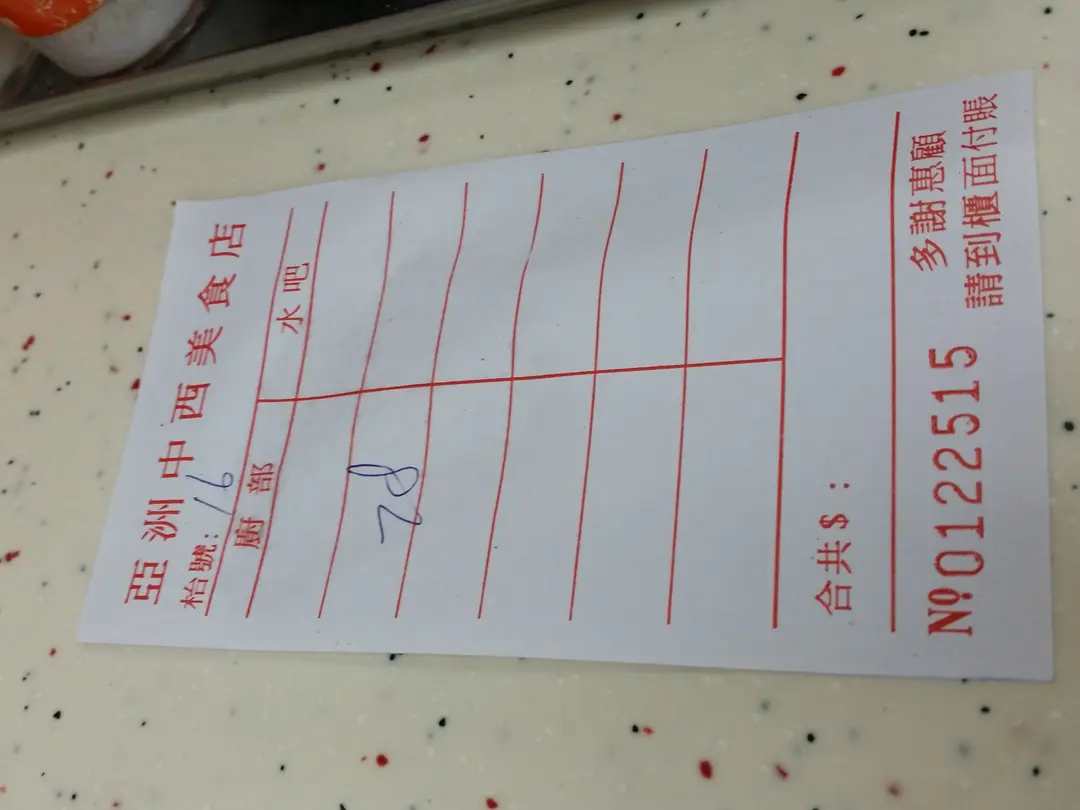 亞洲中西美食店
枱號: 16
廚部 水吧
78
合共$:
多謝惠顧
Nº 0122515 請到櫃面付賬